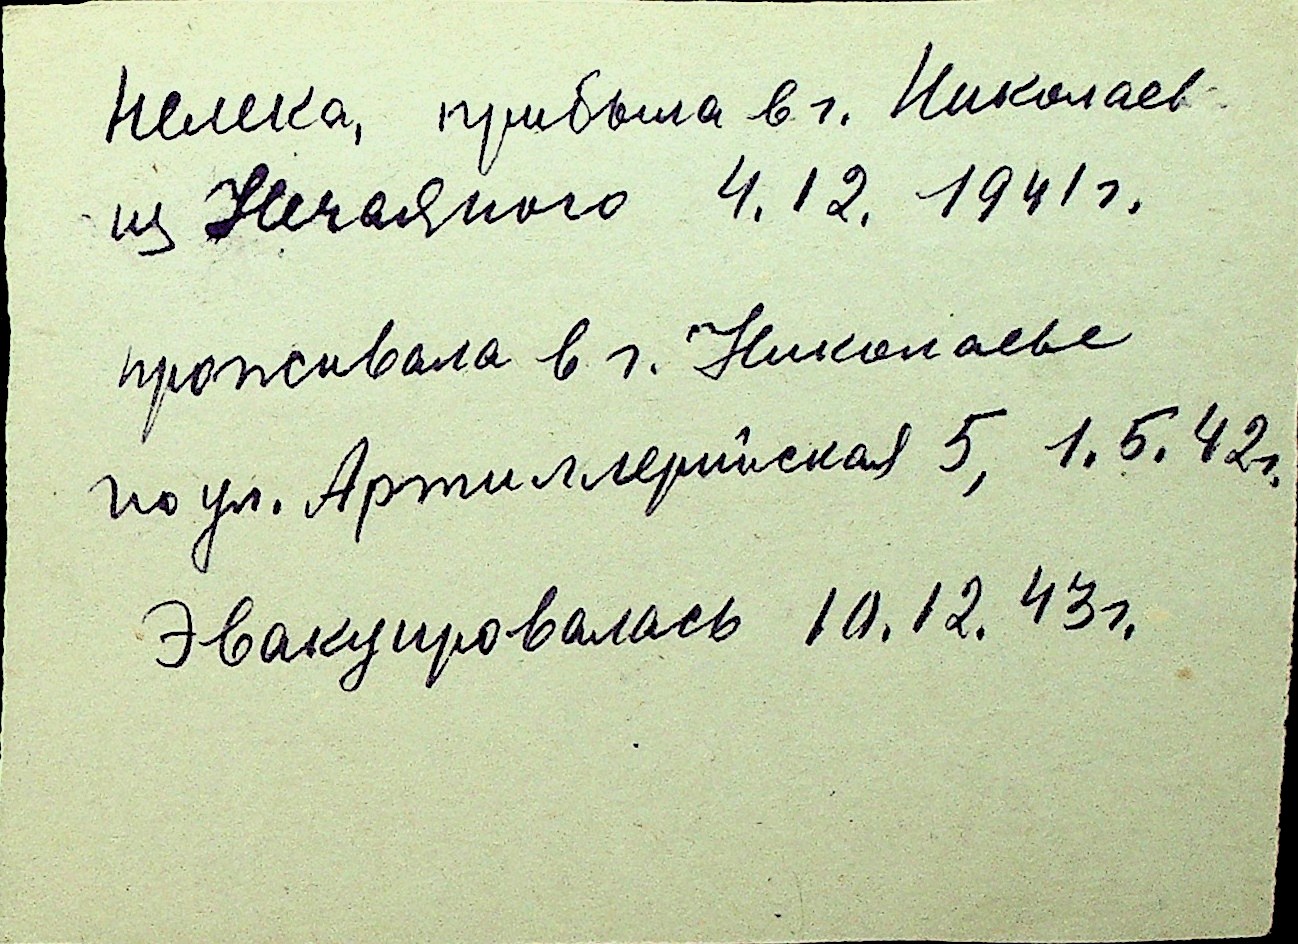 немка, прибыла в г. Николаев
из Нечаяного 4.12. 1941г.
проживала в г. Николаеве
по ул. Артиллерийская 5, 1.5.42г.
Эвакуировалась 10.12.43г.